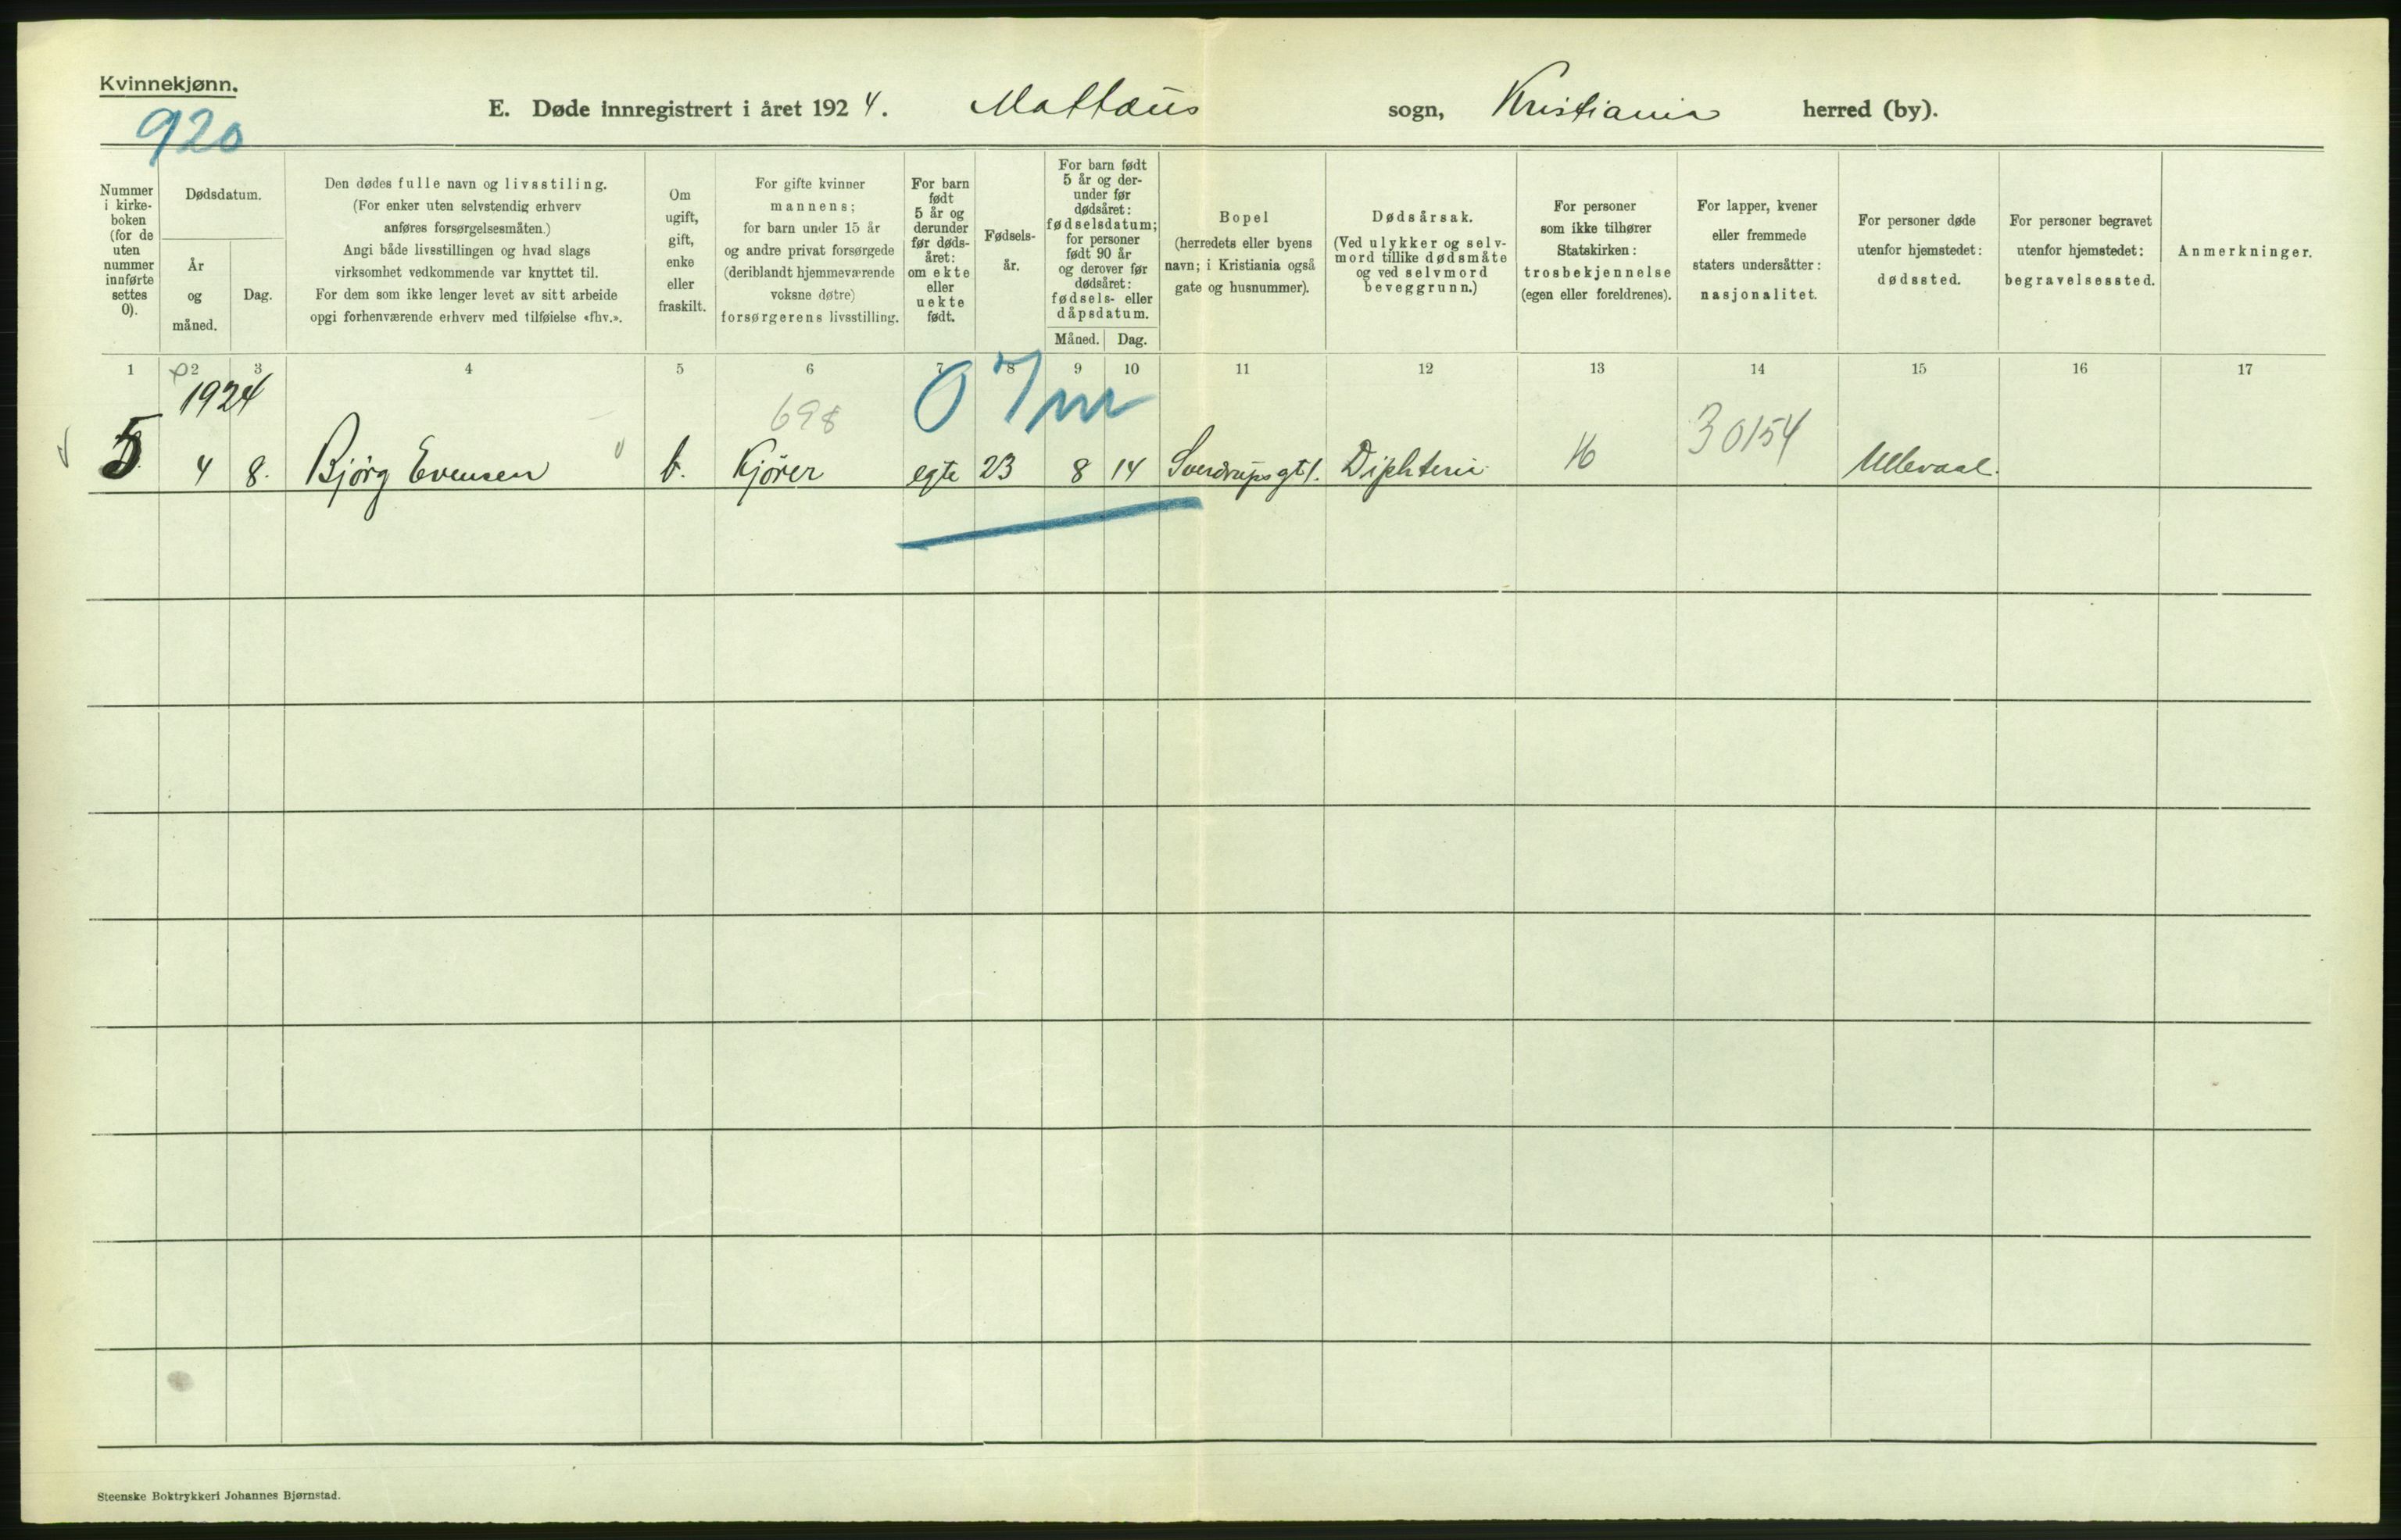 Kvinnekjønn.
920
E. Døde innregistrert i året 1924. Mattæus sogn, Kristiania herred (by).
Nummer i kirke- boken (for de uten nummer innførte settes 0).
Dødsdatum.
År og måned.
Dag.
Den dødes fulle navn og livsstiling.
(For enker uten selvstendig erhverv
anføres forsørgelsesmåten.)
Angi både livsstillingen og hvad slags
virksomhet vedkommende var knyttet til.
For dem som ikke lenger levet av sitt arbeide
opgi forhenværende erhverv med tilføielse «fhv.».
Om
ugift,
gift,
enke
eller
fraskilt.
For gifte kvinner
mannens;
for barn under 15 år
og andre privat forsørgede
(deriblandt hjemmeværende
voksne døtre)
forsørgerens livsstilling.
For barn
født
5 år og
derunder
før døds-
året:
om ekte
eller
uekte
født.
Fødsels-
år.
For barn født
5 år og der-
under før
dødsåret:
fødselsdatum;
for personer
født 90 år
og derover før
dødsåret:
fødsels- eller
dåpsdatum.
Måned. Dag.
Bopel
(herredets eller byens
navn; i Kristiania også
gate og husnummer).
Dødsårsak.
(Ved ulykker og selv-
mord tillike dødsmåte
og ved selvmord
beveggrunn.)
For personer
som ikke tilhører
Statskirken:
trosbekjennelse
(egen eller foreldrenes).
For lapper, kvener
eller fremmede
staters undersåtter:
nasjonalitet.
For personer døde
utenfor hjemstedet:
dødssted.
For personer begravet
utenfor hjemstedet:
begravelsessted.
Anmerkninger.
1 2 3 4 5 6 7 8 9 10 11 12 13 14 15 16 17
1924
698
0 7 m
30154
5 4 8. Bjørg Evensen b. Kjører egte 23 8 14 Sverdrups gt 1. Diphteri 16 Ullevaal.
Steenske Boktrykkeri Johannes Bjørnstad.